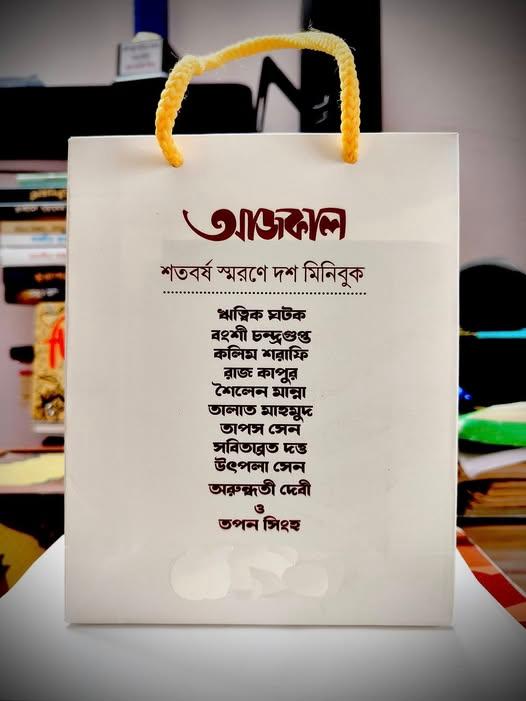 আজকাল
শতবর্ষ স্মরণে দশ মিনিবুক
ঋত্বিক ঘটক
বংশী চন্দ্রগুপ্ত
কলিম শরাফি
রাজ কাপুর
শৈলেন মান্না
তালাত মাহমুদ
তাপস সেন
সবিতাব্রত দত্ত
উৎপলা সেন
অরুন্ধতী দেবী
ও
তপন সিংহ